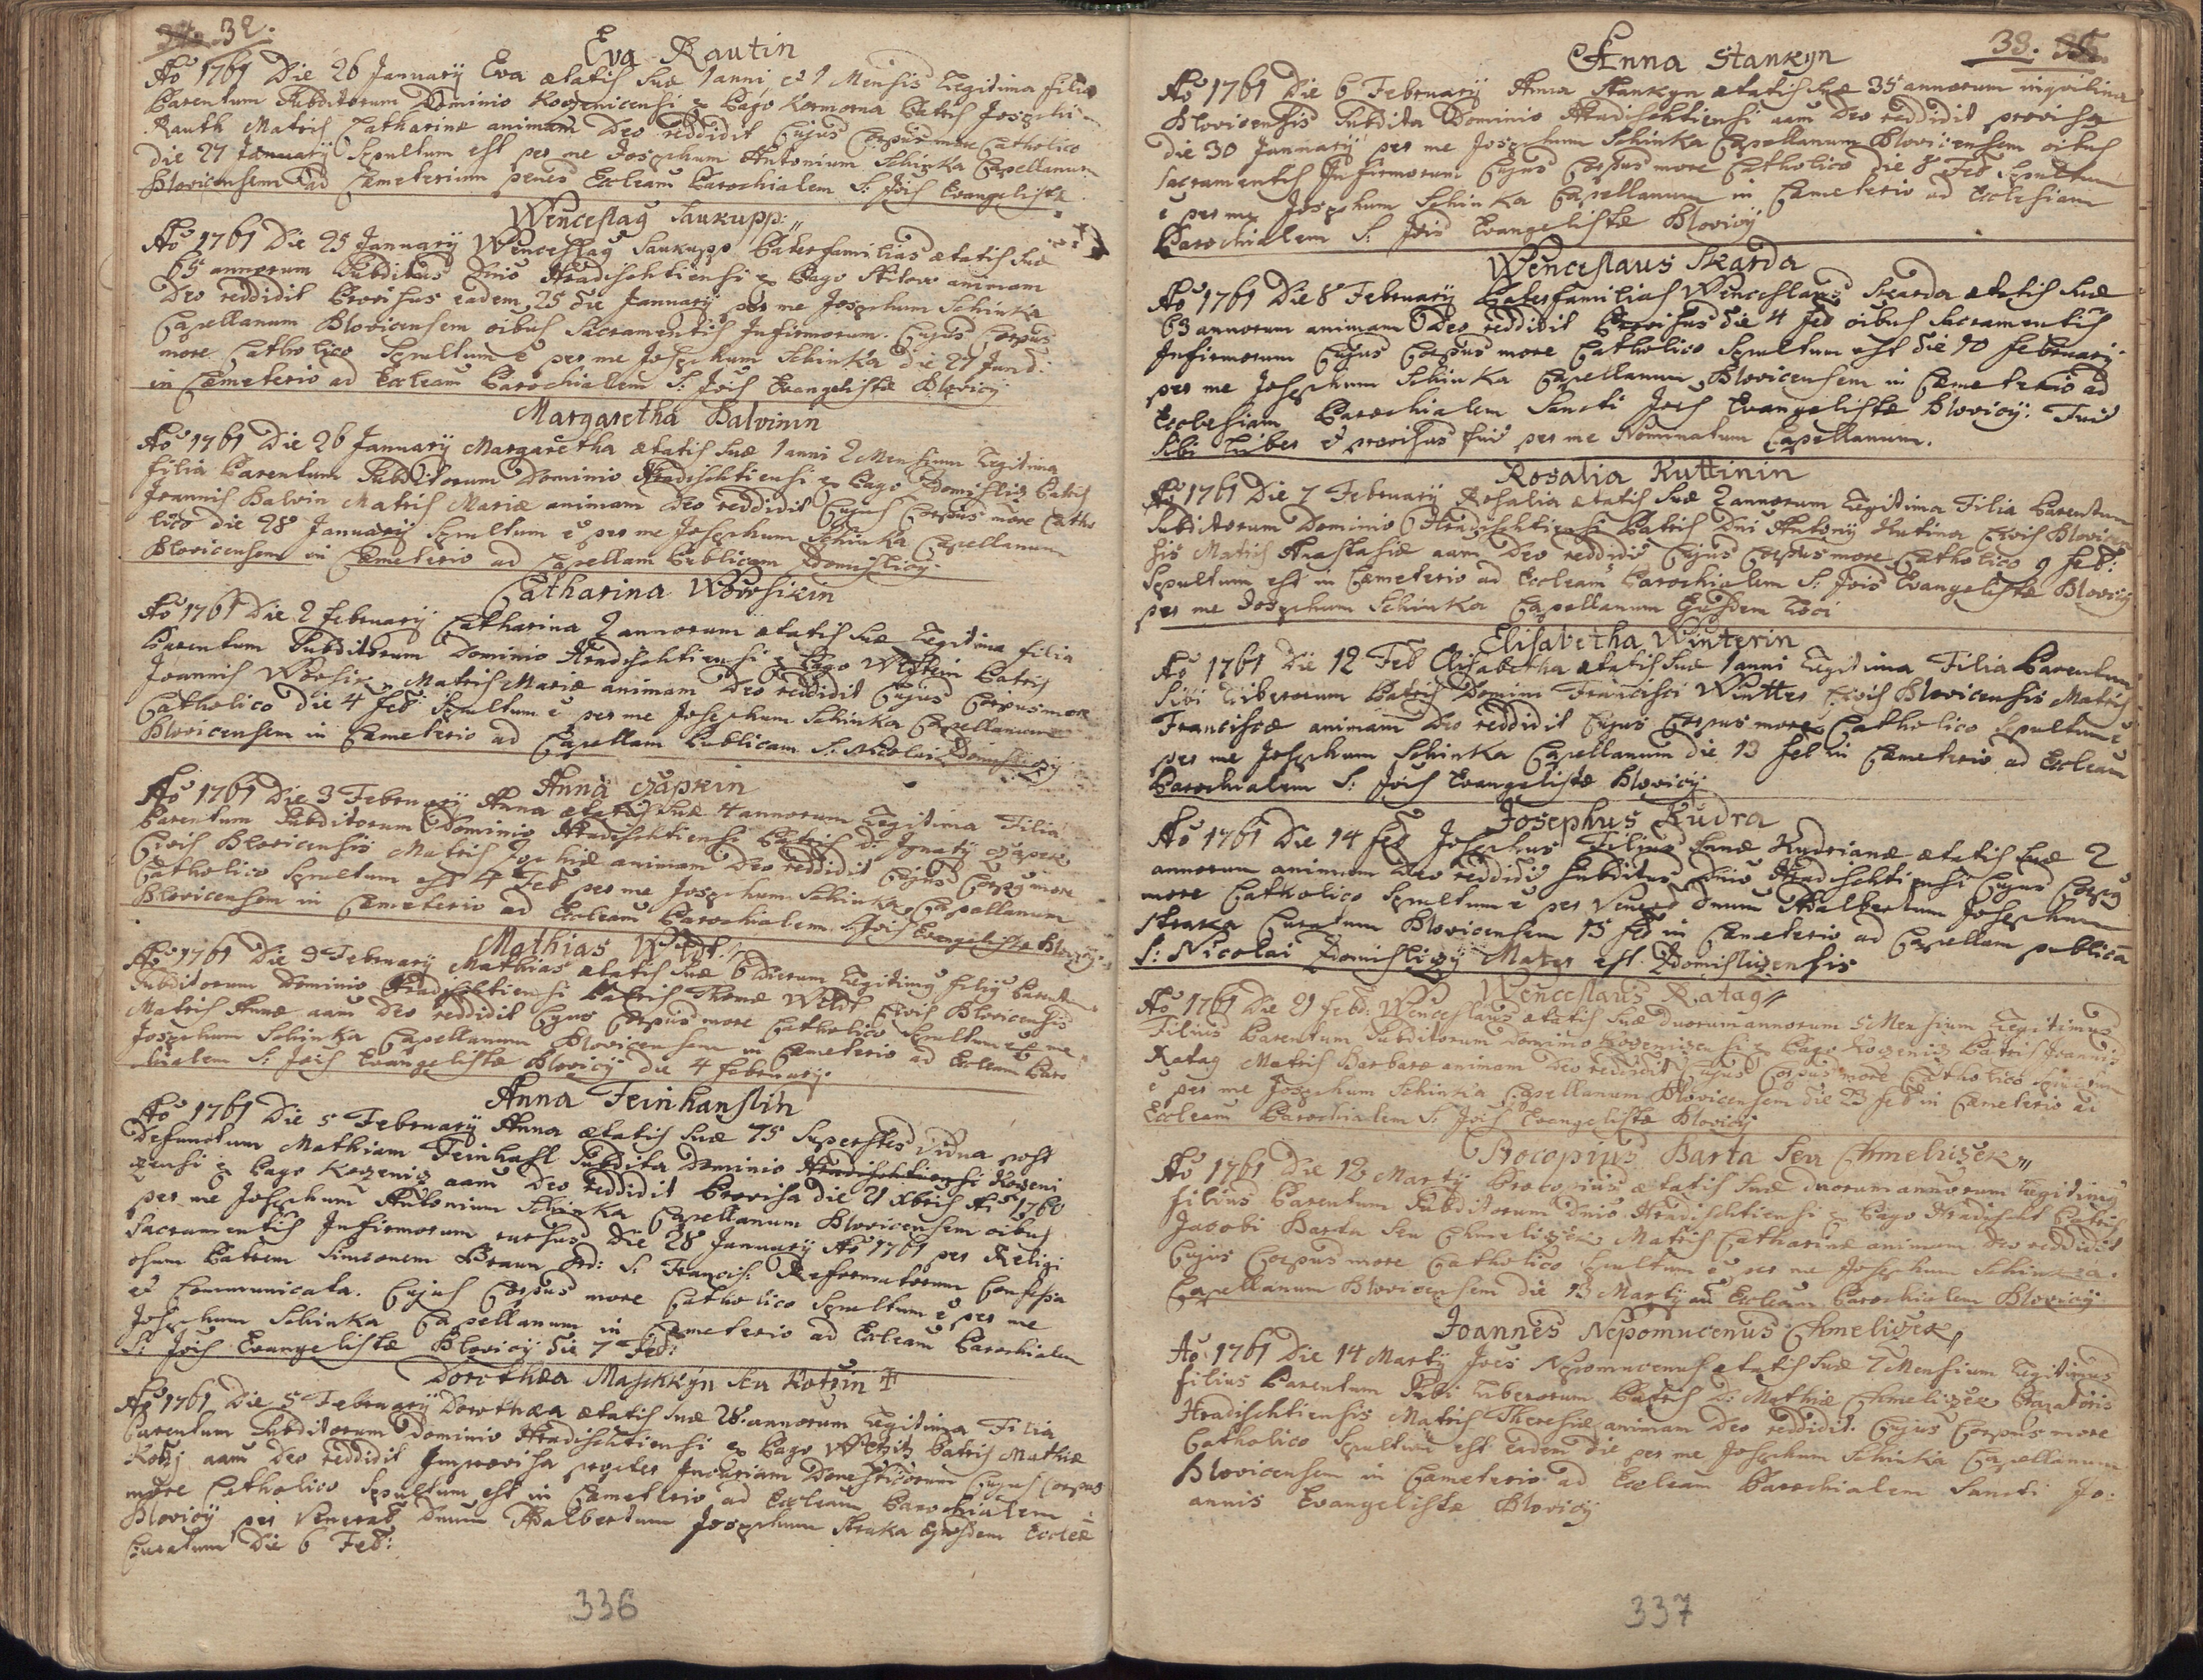 32.
Eva Rautin
Ao 1761 Die 26 January Eva ætatis suæ 1 anni, et 1 Mensis Legitima filia
Parentum Subditorum Dominio Kozenicensi ex Pago Komorna Patris Josephi
Rauth Matris Catharinæ animam Deo reddidit Cujus Corpus more Catholico
die 27 January Sepultum est per me Josephum Antonium Schinka Capellanum
Blovicensem ad Cæmeterium penes Eccleam Parochialem S: Jois Evangelistæ
Wenceslaus Saukupp:
Ao 1761 Die 25 January Wenceslaus Saukupp Paterfamilias ætatis suæ
65 annorum Subditus Dnio Hradischtiensi ex Pago Stitow animam
Deo reddidit Provisus eadem 25 die January per me Josephum Schinka
Capellanum Blovicensem oibus Sacramentis Infirmorum. Cujus Corpus
more Catholico Sepultum e per me Josephum Schinka die 27 Janu:
in Cæmeterio ad Eccleam Parochialem S: Jois Evangelistæ Blovicy
Margaretha Balvinin
Ao 1761 Die 26 January Margaretha ætatis suæ 1 anni 2 Mensium Legitima
filia Parentum Subditorum Dominio Hradischtiensi ex Pago Zdomisliz Patris
Joannis Balvin Matris Mariæ animam Deo reddidit Cujus Corpus more Catho
lico die 28 January Sepultum e per me Josephum Schinka Capellanum
Blovicensem in Cæmeterio ad Capellam Publicam Zdomislicy.
Catharina Worsikin
Ao 1761 Die 2 February Catharina 2 annorum ætatis suæ Legitima filia
Parentum Subditorum Dominio Hradischtiensi ex Pago Patris
Joannis Worsik Matris Mariæ animam Deo reddidit Cujus Corpus more
Catholico die 4 Feb Sepultum e per me Josephum Schinka Capellanum
Blovicensem in Cæmeterio ad Capellam Publicam S: Nicolai Zdomislizy
Anna Czapkin
Ao 1761 Die 3 February Anna ætatis suæ 4 annorum Legitima Filia
Parentum Subditorum Dominio Hradischtiensi Patris D: Ignaty Czapek
Civis Blovicensis Matris Sophiæ animam Deo reddidit Cujus Corpus more
Catholico Sepultum est 4 Feb per me Josephum Schinka Capellanum
Blovicensem in Cæmeterio ad Eccleam Parochialem S. Jois Evangelistæ Blovicy.
Mathias Wildt
Ao 1761 Die 3 February Mathias ætatis suæ 6 Dierum Legitimus filius Parentum
Subditorum Dominio Hradischtiensi Patris Thomæ Wildt Civis Blovicensis
Matris Annæ aam Deo reddidit Cujus Corpus more Catholico Sepultum e per me
Josephum Schinka Capellanum Blovicensem in Cæmeterio ad Eccleam Paro
chialem S: Jois Evangelistæ Blovicy die 4 February.
Anna Feinhanslin
Ao 1761 Die 5 February Anna ætatis suæ 75 Superstes Vidua post
Defunctum Mathiam Feinhasl Subdita Dominio Hradischtiensi Kozeni
zensi ex Pago Kozeniz aam Deo reddidit Provisa die 21 Xbris Ao 1760
per me Josephum Antonium Schinka Capellanum Blovicensem oibus
Sacramentis Infirmorum rursus Die 28 January Ao 1761 per Religi
osum Patrem Simeonem Braun Ord: S: Francis: Reformatorum Confessa
et Communicata. Cujus Corpus more Catholico Sepultum e per me
Josephum Schinka Capellanum in Cæmeterio ad Eccleam Parochialem
S: Jois Evangelistæ Blovicy die 7 Feb:
Dorothæa Maschkyn seu Kotzin
Ao 1761 Die 5 February Dorothæa ætatis suæ 28 annorum Legitima Filia
Parentum Subditorum Dominio Hradischtiensi ex Pago Patris Mathiæ
Kotzj aam Deo reddidit Improvisa propter Incuriam Domesticorum Cujus Corpus
more Catholico Sepultum est in Cæmeterio ad Eccleam Parochialem
Blovicy per Venerab Dnum Adalbertum Josephum Straka Ejusdem Eccleæ
Curatum Die 6 Feb:
336
33.
Anna Stankyn
Ao 1761 Die 6 February Anna Stankyn ætatis suæ 35 annorum inquilina
Blovicensis Subdita Dominio Hradischtiensi aam Deo reddidit provisa
die 30 January per me Josephum Schinka Capellanum Blovicensem oibus
Sacramentis Infirmorum Cujus Corpus more Catholico die 8 Feb Sepultum
e per me Josephum Schinka Capellanum in Cæmeterio ad Ecclesiam
Parochialem S: Jois Evangelistæ Blovicy
Wenceslaus Skarda
Ao 1761 Die 8 February Paterfamilias Wenceslaus Skarda ætatis suæ
63 annorum animam Deo reddidit Provisus die 4 Feb oibus Sacramentis
Infirmorum Cujus Corpus more Catholico Sepultum est die 10 February
per me Josephum Schinka Capellanum Blovicensem in Cæmeterio ad
Ecclesiam Parochialem Sancti Jois Evangelistæ Blovicy. Fuit
Sibi Liber et provisus fuit per me Nominatum Capellanum.
Rosalia Kuttinin
Ao 1761 Die 7 February Rosalia ætatis suæ 2 annorum Legitima Filia Parentum
Subditorum Dominio Hradischtiensi Patris Dni Antony Kutina Civis Blovicen
sis Matris Anastasiæ aam Deo reddidit Cujus Corpus more Catholico 9 Feb:
Sepultum est in Cæmeterio ad Eccleam Parochialem S: Jois Evangelistæ Blovicy
per me Josephum Schinka Capellanum Ejusdem Loci
Elisabetha Winterin
Ao 1761 Die 12 Feb Elisabetha ætatis suæ 1 anni Legitima Filia Parentum
Sibi Liberorum Patris Domini Francisci Wintter Civis Blovicensis Matris
Franciscæ animam Deo reddidit Cujus Corpus more Catholico Sepultum e
per me Josephum Schinka Capellanum die 13 Feb in Cæmeterio ad Eccleam
Parochialem S: Jois Evangelistæ Blovicy
Josephus Kudra
Ao 1761 Die 14 Feb Josephus Filius Annæ Kudrianæ ætatis suæ 2
annorum animam Deo reddidit Subditus Dnio Hradischtiensi Cujus Corpus
more Catholico Sepultum e per Venerab Dnum Adalbertum Josephum
Straka Curatum Blovicensem 15 Feb in Cæmeterio ad Capellam publica
S: Nicolai Zdomislizy Mater est Zdomislizensis
Wenceslaus Ratag
Ao 1761 Die 21 Feb: Wenceslaus ætatis suæ duorum annorum 5 Mensium Legitimus
Filius Parentum Subditorum Dominio Kozenizensi ex Pago Kozeniz Patris Joannis
Ratag Matris Barbaræ animam Deo reddidit Cujus Corpus more Catholico Sepultum
e per me Josephum Schinka Capellanum Blovicensem die 23 Feb in Cæmeterio ad
Eccleam Parochialem S: Jois Evangelistæ Blovicy
Procopius Barta seu Chmelizek
Ao 1761 Die 12 Marty Procopius ætatis suæ duorum annorum Legitimus
filius Parentum Subditorum Dnio Hradischtiensi ex Pago Hradischt Patris
Jacobi Barta seu Chmelizek Matris Catharinæ animam Deo reddidit
Cujus Corpus more Catholico Sepultum e per me Josephum Schinka
Capellanum Blovicensem die 13 Marty ad Eccleam Parochialem Blovicy
Joannes Nepomucenus Chmelizek
Ao 1761 Die 14 Marty Joes Nepomucenus ætatis suæ 7 Mensium Legitimus
filius Parentum Sibi Liberorum Patris D: Mathiæ Chmelizek
Hradischtiensis Matris Theresiæ animam Deo reddidit. Cujus Corpus more
Catholico Sepultum est eadem die per me Josephum Schinka Capellanum
Blovicensem in Cæmeterio ad Eccleam Parochialem Sancti Jo:
annis Evangelistæ Blovicy
337